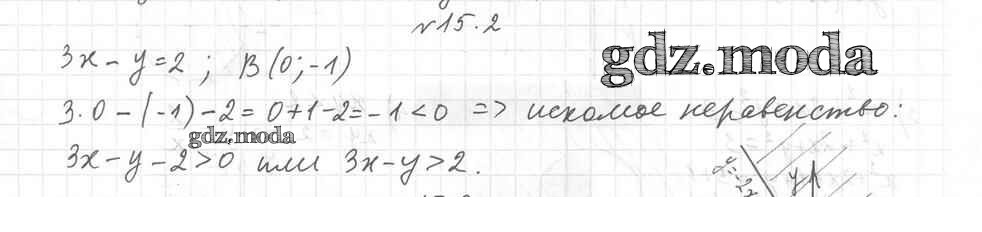 №15.2
3x - y = 2 ; B (0; -1)
gdz.moda
3·0 - (-1) - 2 = 0 + 1 - 2 = -1 < 0 => искомое неравенство:
gdz.moda
3x - y - 2 > 0 или 3x - y > 2.
y